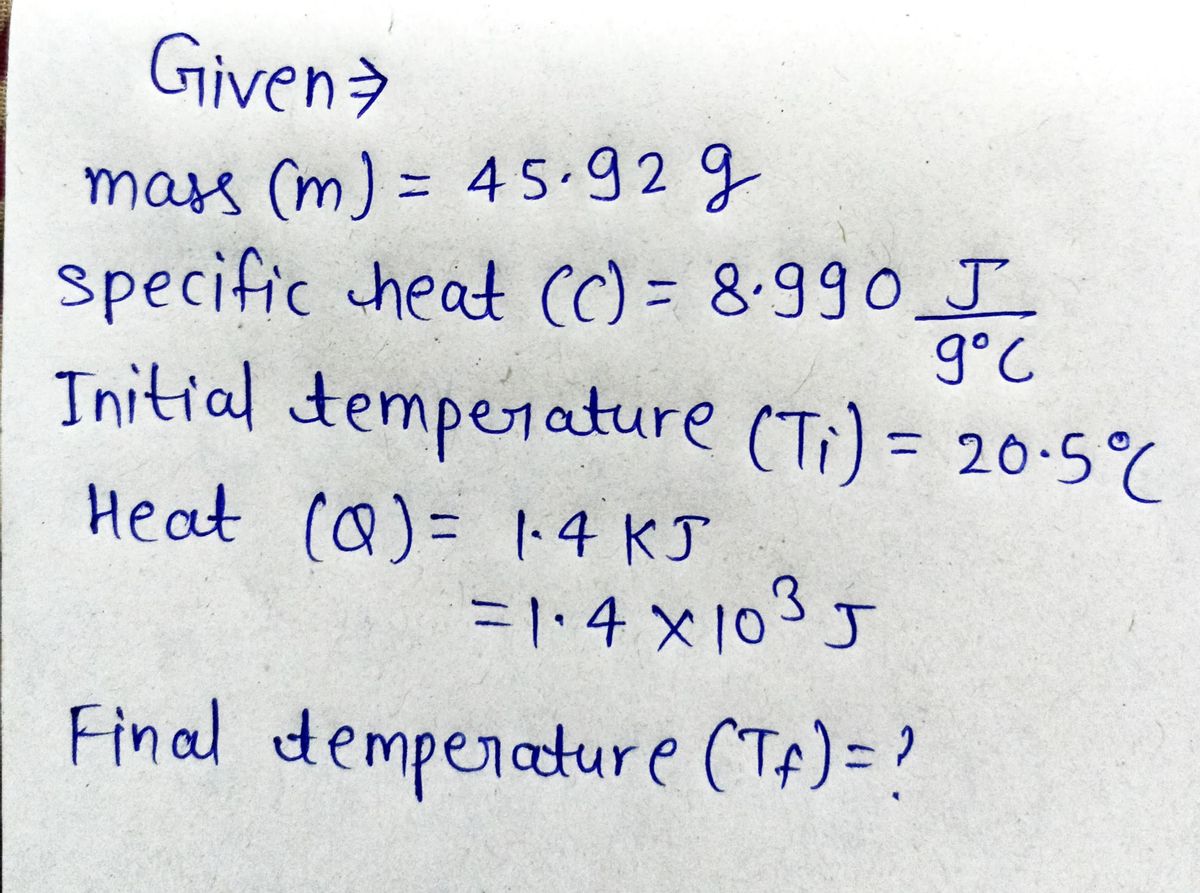 Given⇒
mass (m) = 45.92 g
specific heat (C) = 8.990 J/g°C
Initial temperature (Ti) = 20.5°C
Heat (Q) = 1.4 KJ
= 1.4 × 10³ J
Final temperature (Tf) = ?